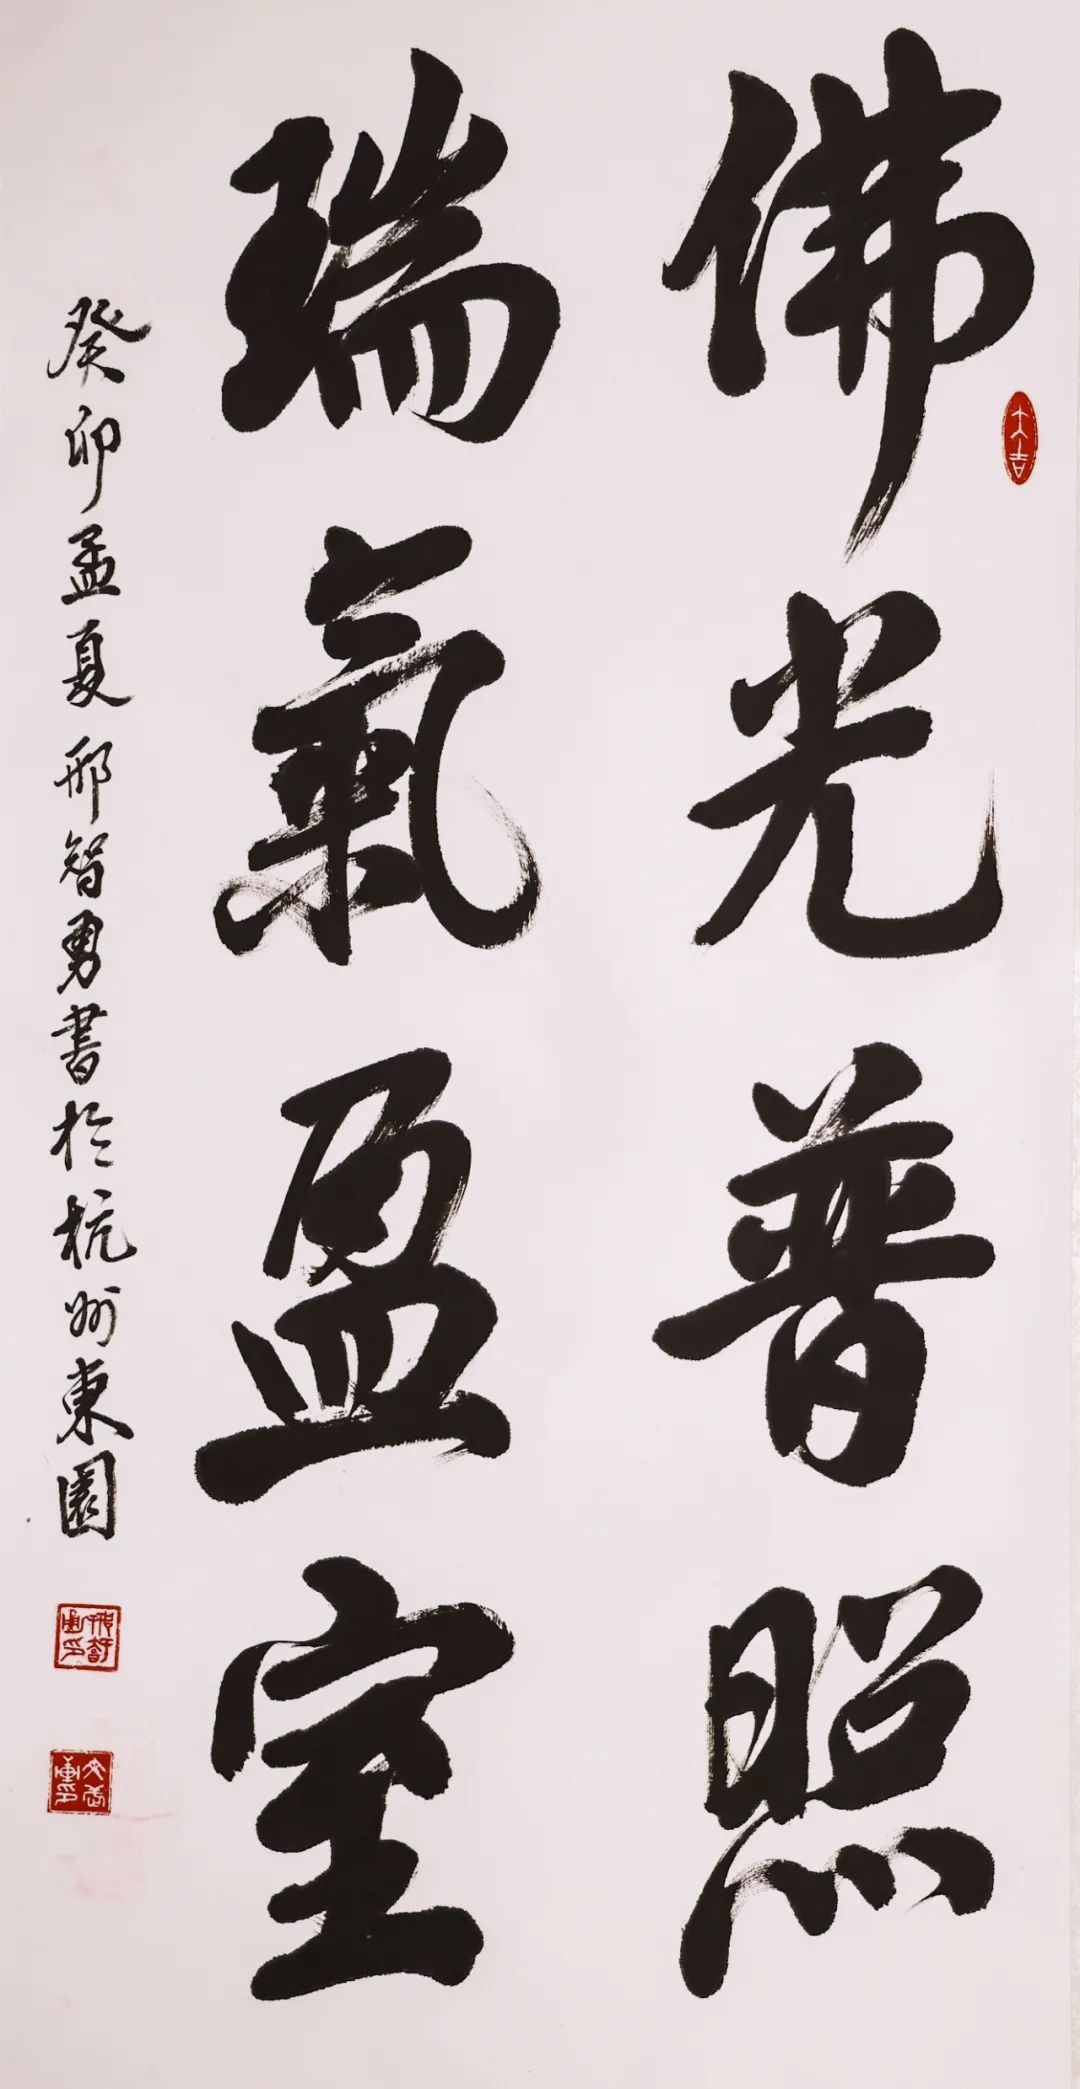 佛光普照
瑞氣盈室
癸卯孟夏邢智勇書於杭州東園
大吉